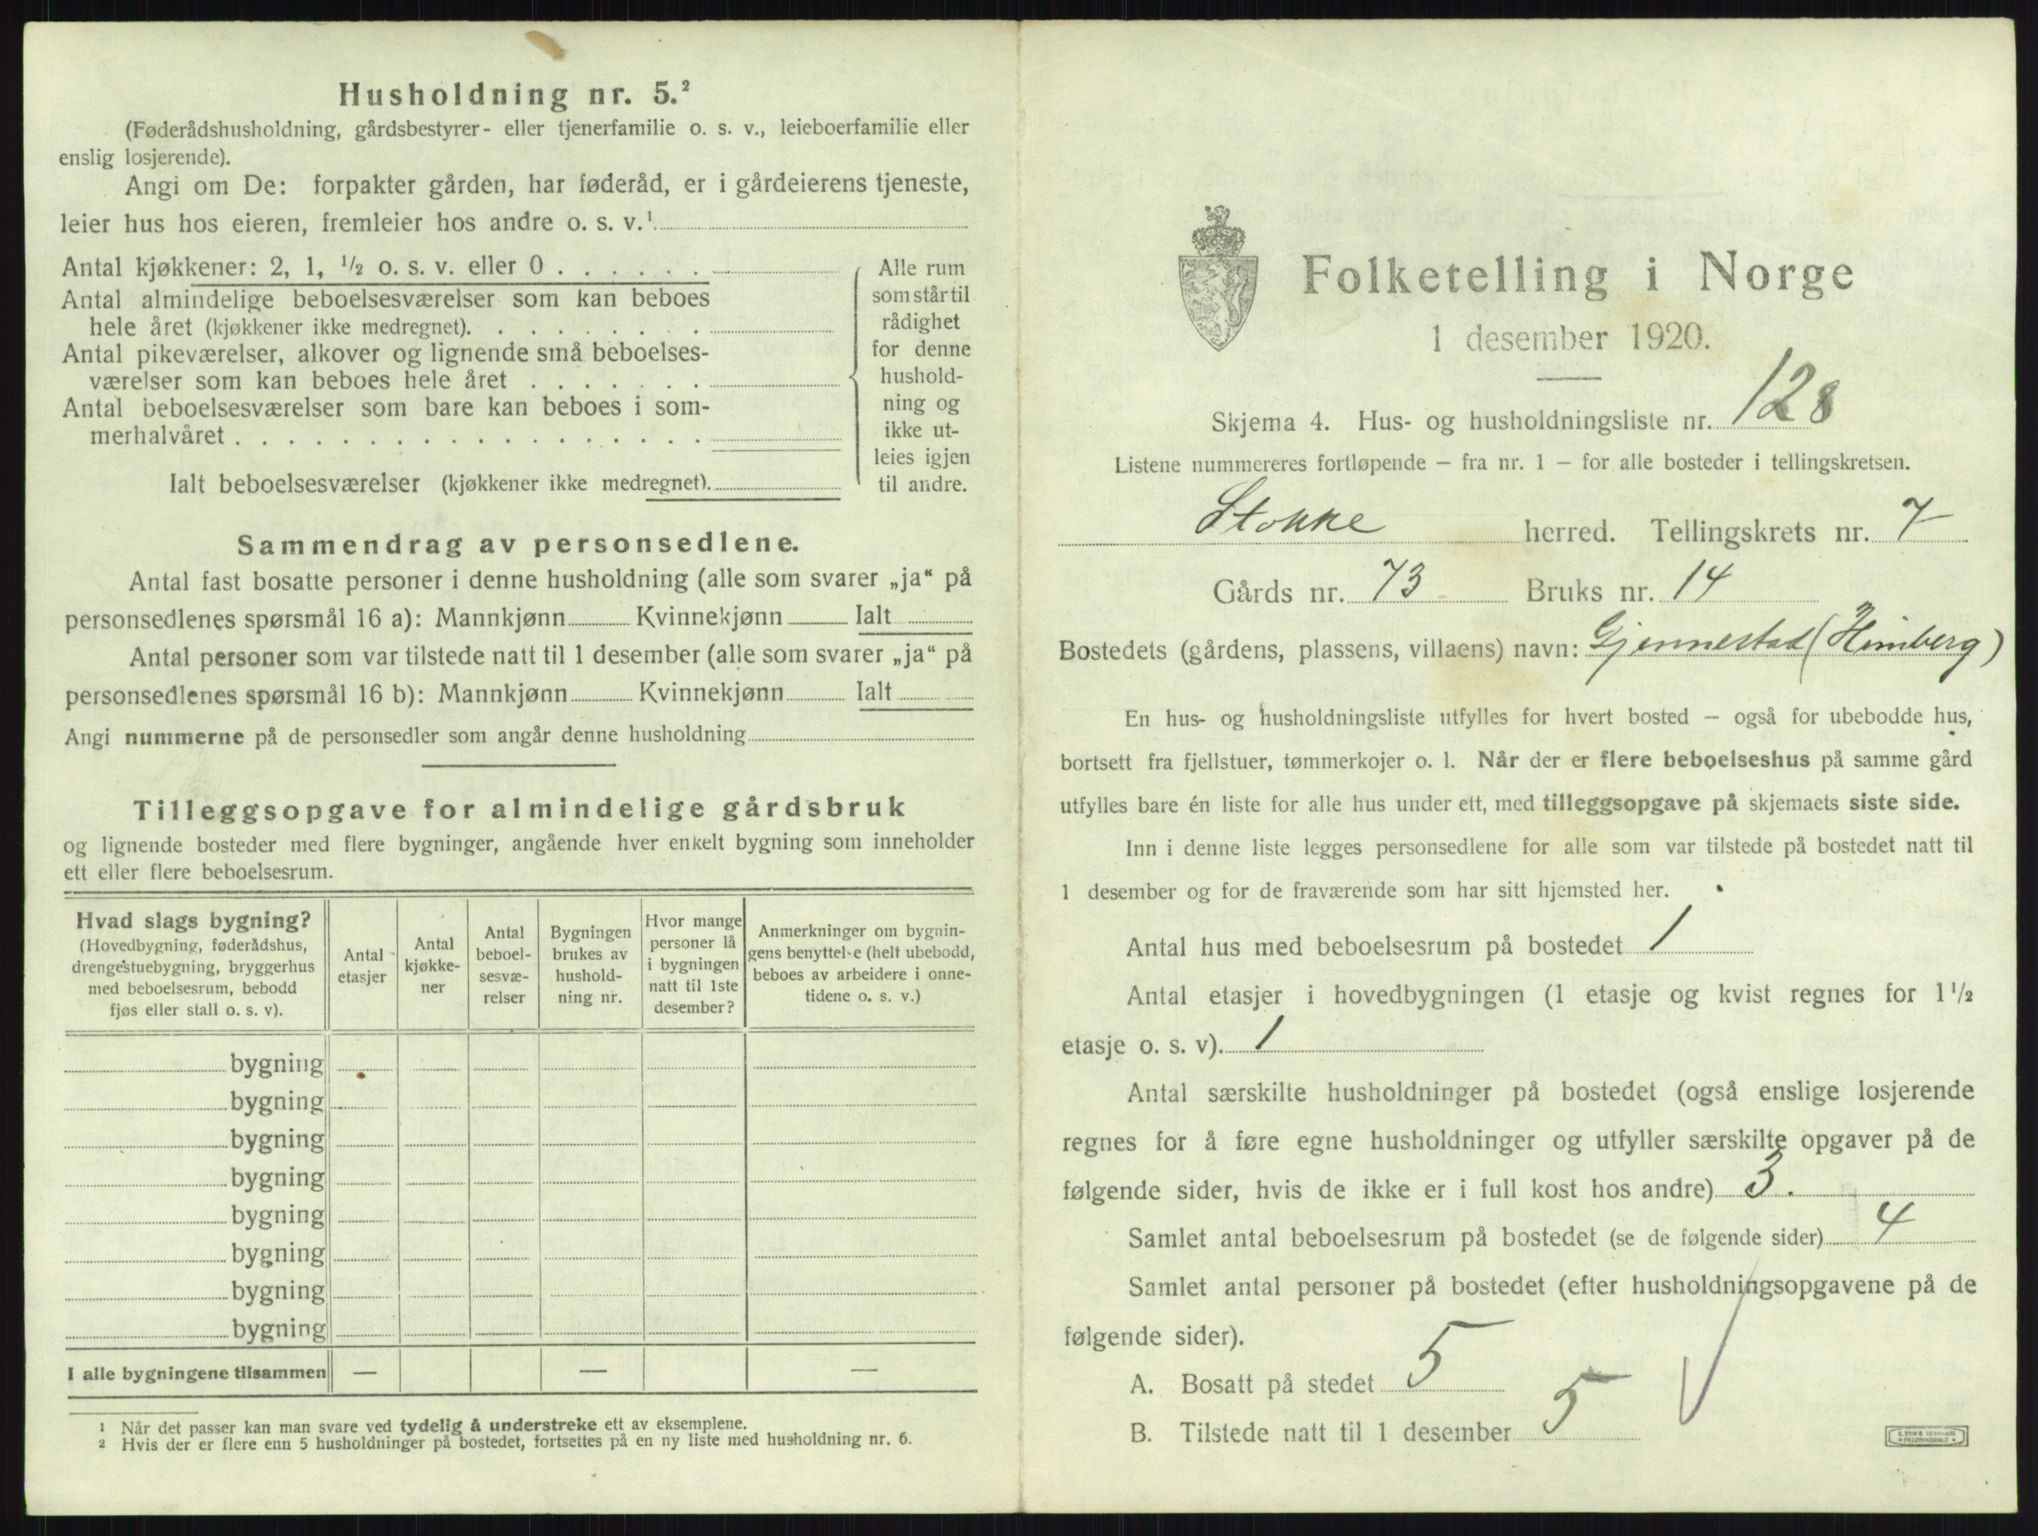 Husholdning nr. 5.²
(Føderådshusholdning, gårdsbestyrer- eller tjenerfamilie o. s. v., leieboerfamilie eller
enslig losjerende).
Angi om De: forpakter gården, har føderåd, er i gårdeierens tjeneste,
leier hus hos eieren, fremleier hos andre o. s. v.¹
Antal kjøkkener: 2, 1, ½ o. s. v. eller 0 . . . . . .
Antal almindelige beboelsesværelser som kan beboes
hele året (kjøkkener ikke medregnet). . . . . . . . .
Antal pikeværelser, alkover og lignende små beboelses-
værelser som kan beboes hele året . . . . . . .
Antal beboelsesværelser som bare kan beboes i som-
merhalvåret . . . . . . . . . . . . . . . . . .
Ialt beboelsesværelser (kjøkkener ikke medregnet).
Alle rum
som står til
rådighet
for denne
hushold-
ning og
ikke ut-
leies igjen
til andre.
Sammendrag av personsedlene.
Antal fast bosatte personer i denne husholdning (alle som svarer „ja“ på
personsedlenes spørsmål 16 a): Mannkjønn Kvinnekjønn Ialt
Antal personer som var tilstede natt til 1 desember (alle som svarer „ja“ på
personsedlenes spørsmål 16 b): Mannkjønn Kvinnekjønn Ialt
Angi nummerne på de personsedler som angår denne husholdning
Tilleggsopgave for almindelige gårdsbruk
og lignende bosteder med flere bygninger, angående hver enkelt bygning som inneholder
ett eller flere beboelsesrum.
Hvad slags bygning?
(Hovedbygning, føderådshus,
drengestuebygning, bryggerhus
med beboelsesrum, bebodd
fjøs eller stall o. s. v).
Antal
etasjer
Antal
kjøkke-
ner
Antal
beboel-
sesvæ-
relser
Bygningen
brukes av
hushold-
ning nr.
Hvor mange
personer lå
i bygningen
natt til 1ste
desember?
Anmerkninger om bygnin-
gens benyttelse (helt ubebodd,
beboes av arbeidere i onne-
tidene o. s. v.)
bygning
bygning
bygning
bygning
bygning
bygning
bygning
bygning
I alle bygningene tilsammen — — —
¹ Når det passer kan man svare ved tydelig å understreke ett av eksemplene.
² Hvis der er flere enn 5 husholdninger på bostedet, fortsettes på en ny liste med husholdning nr. 6.
Folketelling i Norge
1 desember 1920.
Skjema 4. Hus- og husholdningsliste nr. 128
Listene nummereres fortløpende – fra nr. 1 – for alle bosteder i tellingskretsen.
Stokke herred. Tellingskrets nr. 7
Gårds nr. 73 Bruks nr. 14
Bostedets (gårdens, plassens, villaens) navn: Gjennestad (Himberg)
En hus- og husholdningsliste utfylles for hvert bosted – også for ubebodde hus,
bortsett fra fjellstuer, tømmerkojer o. l. Når der er flere beboelseshus på samme gård
utfylles bare én liste for alle hus under ett, med tilleggsopgave på skjemaets siste side.
Inn i denne liste legges personsedlene for alle som var tilstede på bostedet natt til
1 desember og for de fraværende som har sitt hjemsted her.
Antal hus med beboelsesrum på bostedet 1
Antal etasjer i hovedbygningen (1 etasje og kvist regnes for 1½
etasje o. s. v). 1
Antal særskilte husholdninger på bostedet (også enslige losjerende
regnes for å føre egne husholdninger og utfyller særskilte opgaver på de
følgende sider, hvis de ikke er i full kost hos andre) 3.
Samlet antal beboelsesrum på bostedet (se de følgende sider) 4
Samlet antal personer på bostedet (efter husholdningsopgavene på de
følgende sider).
A. Bosatt på stedet 5
B. Tilstede natt til 1 desember 5